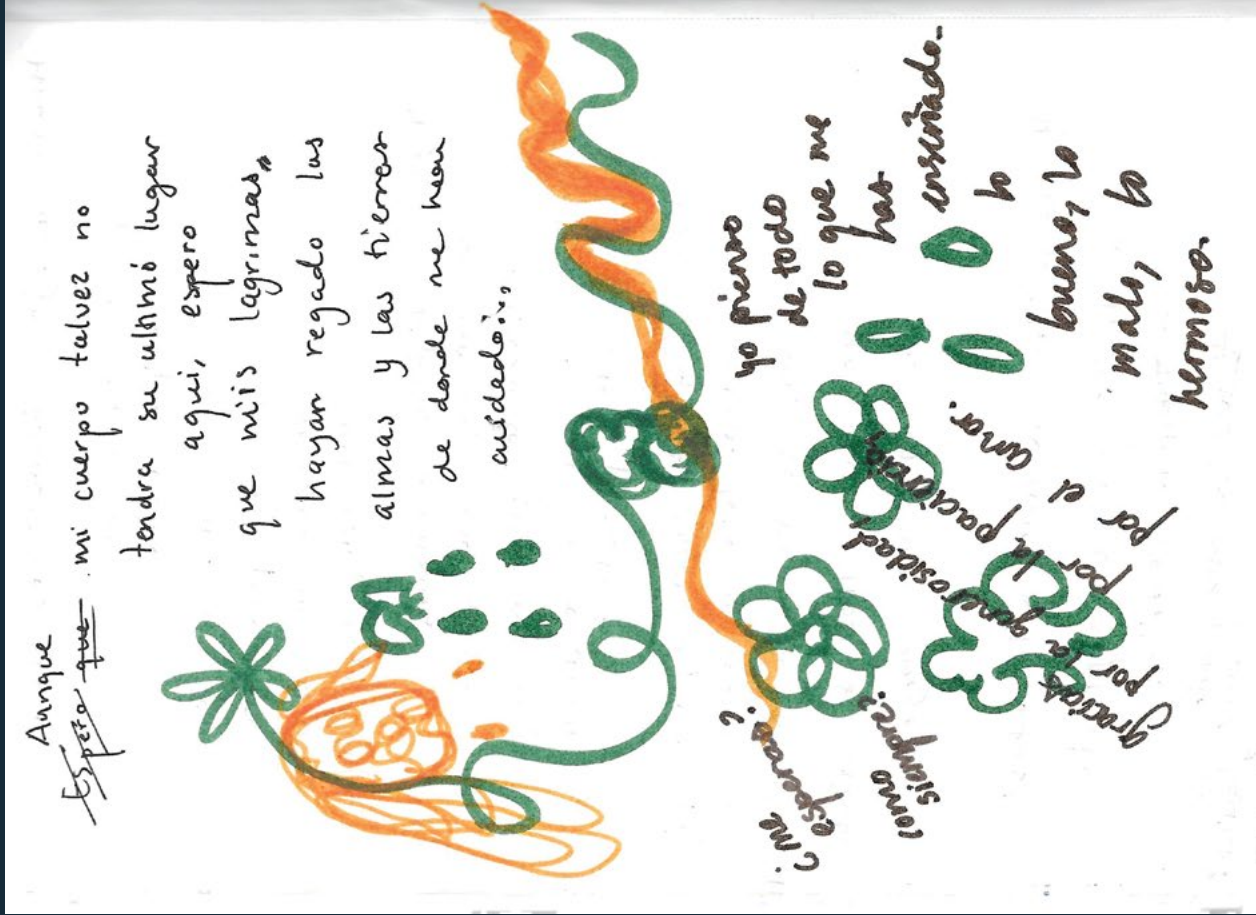 Aunque
~~Espero que~~ mi cuerpo talvez no
tendra su ultimo lugar
aqui, espero
que mis lagrimas,,
hayan regado las
almas y las tierras
de donde me han
cuidado..,
yo pienso
de todo
lo que me
has
enseñado.
lo
bueno, lo
malo, lo
hermoso.
gracias
por la generosidad,
por la paciencia,
por el amor.
¿me
esperas?
como
siempre?